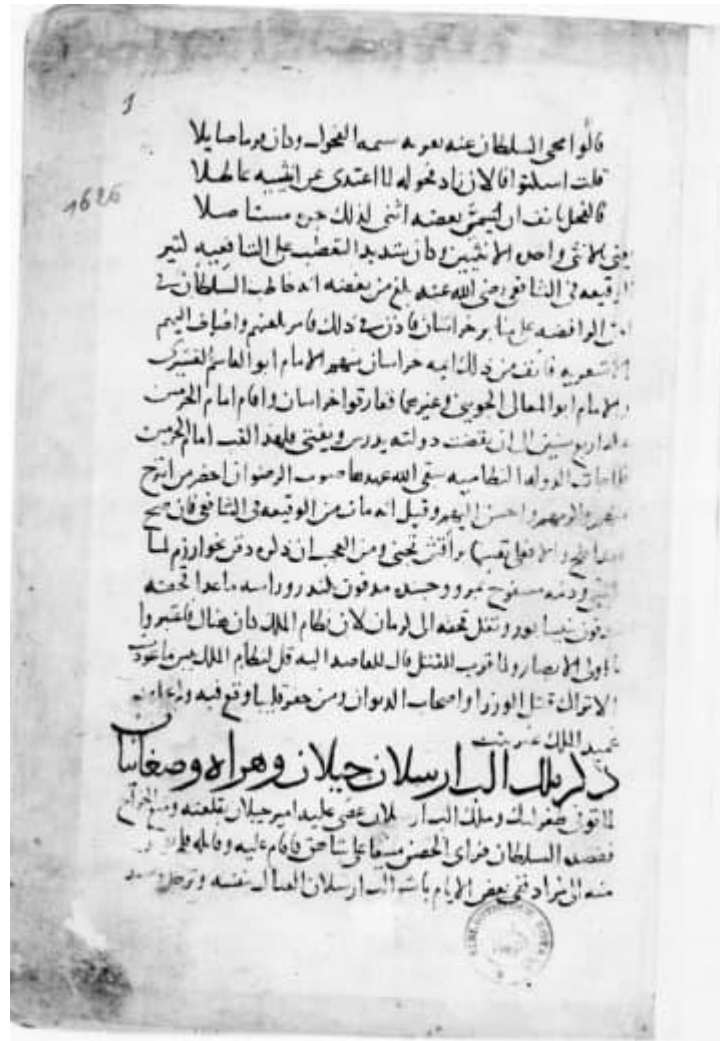 1
1626
قالوا محى السلطان عنه بعده سمة الفحول وكان قرما صايلا
قلت اسكتوا فالان زاد فحوله لما اغتدى عن انثييه عاطلا
فالفحل يانف ان يسمى بعضه انثى لذلك جذه مستاصلا
يعنى بالانثى واحده الانثيين وكان شديد التعصب على الشافعيه كثير
الوقيعه فى الشافعى رضى الله عنه بلغ من تعصبه انه خاطب السلطان فى
لعن الرافضه على منابر خراسان فاذن فى ذلك فامر بلعنهم واضاف اليهم
الاشعريه فانف من ذلك ايمه خراسان منهم الامام ابو القاسم القشيرى
والامام ابو المعالى الجوينى وغيرهما ففارقوا خراسان واقام امام الحرمين
بمكه اربع سنين الى ان انقضت دولته يدرس ويفتى فلهذا لقب امام الحرمين
فلما جات الدوله النظاميه سقى الله عهدها صوب الرضوان احضر من انتزح
منهم واكرمهم واحسن اليهم وقيل انه تاب من الوقيعه فى الشافعى فان صح
فقد افلح والا فعلى نفسها براقش تجنى ومن العجب ان ذكره دفن بخوارزم لما
خصى ودمه مسفوح بمرو وجسده مدفون بكندر وراسه ماعدا قحفه
مدفون بنيسابور ونقل قحفه الى كرمان لان نظام الملك كان هناك فاعتبروا
يا اولى الابصار ولما قرب للقتل قال للقاصد اليه قل لنظام الملك بيس ما عودت
الاتراك قتل الوزرا واصحاب الديوان ومن حفر قليبا وقع فيه
عميد الملك غير بنت
ذكر ملك الب ارسلان ختلان وهراه وصغانيان
لما توفى طغرلبك وملك الب ارسلان عصى عليه امير ختلان بقلعته ومنع الخراج
فقصده السلطان فراى الحصن منيعا على شاهق فاقام عليه وقاتله فلم
منه الى مراد ففى بعض الايام باشر الب ارسلان القتال بنفسه وترجل وصعد